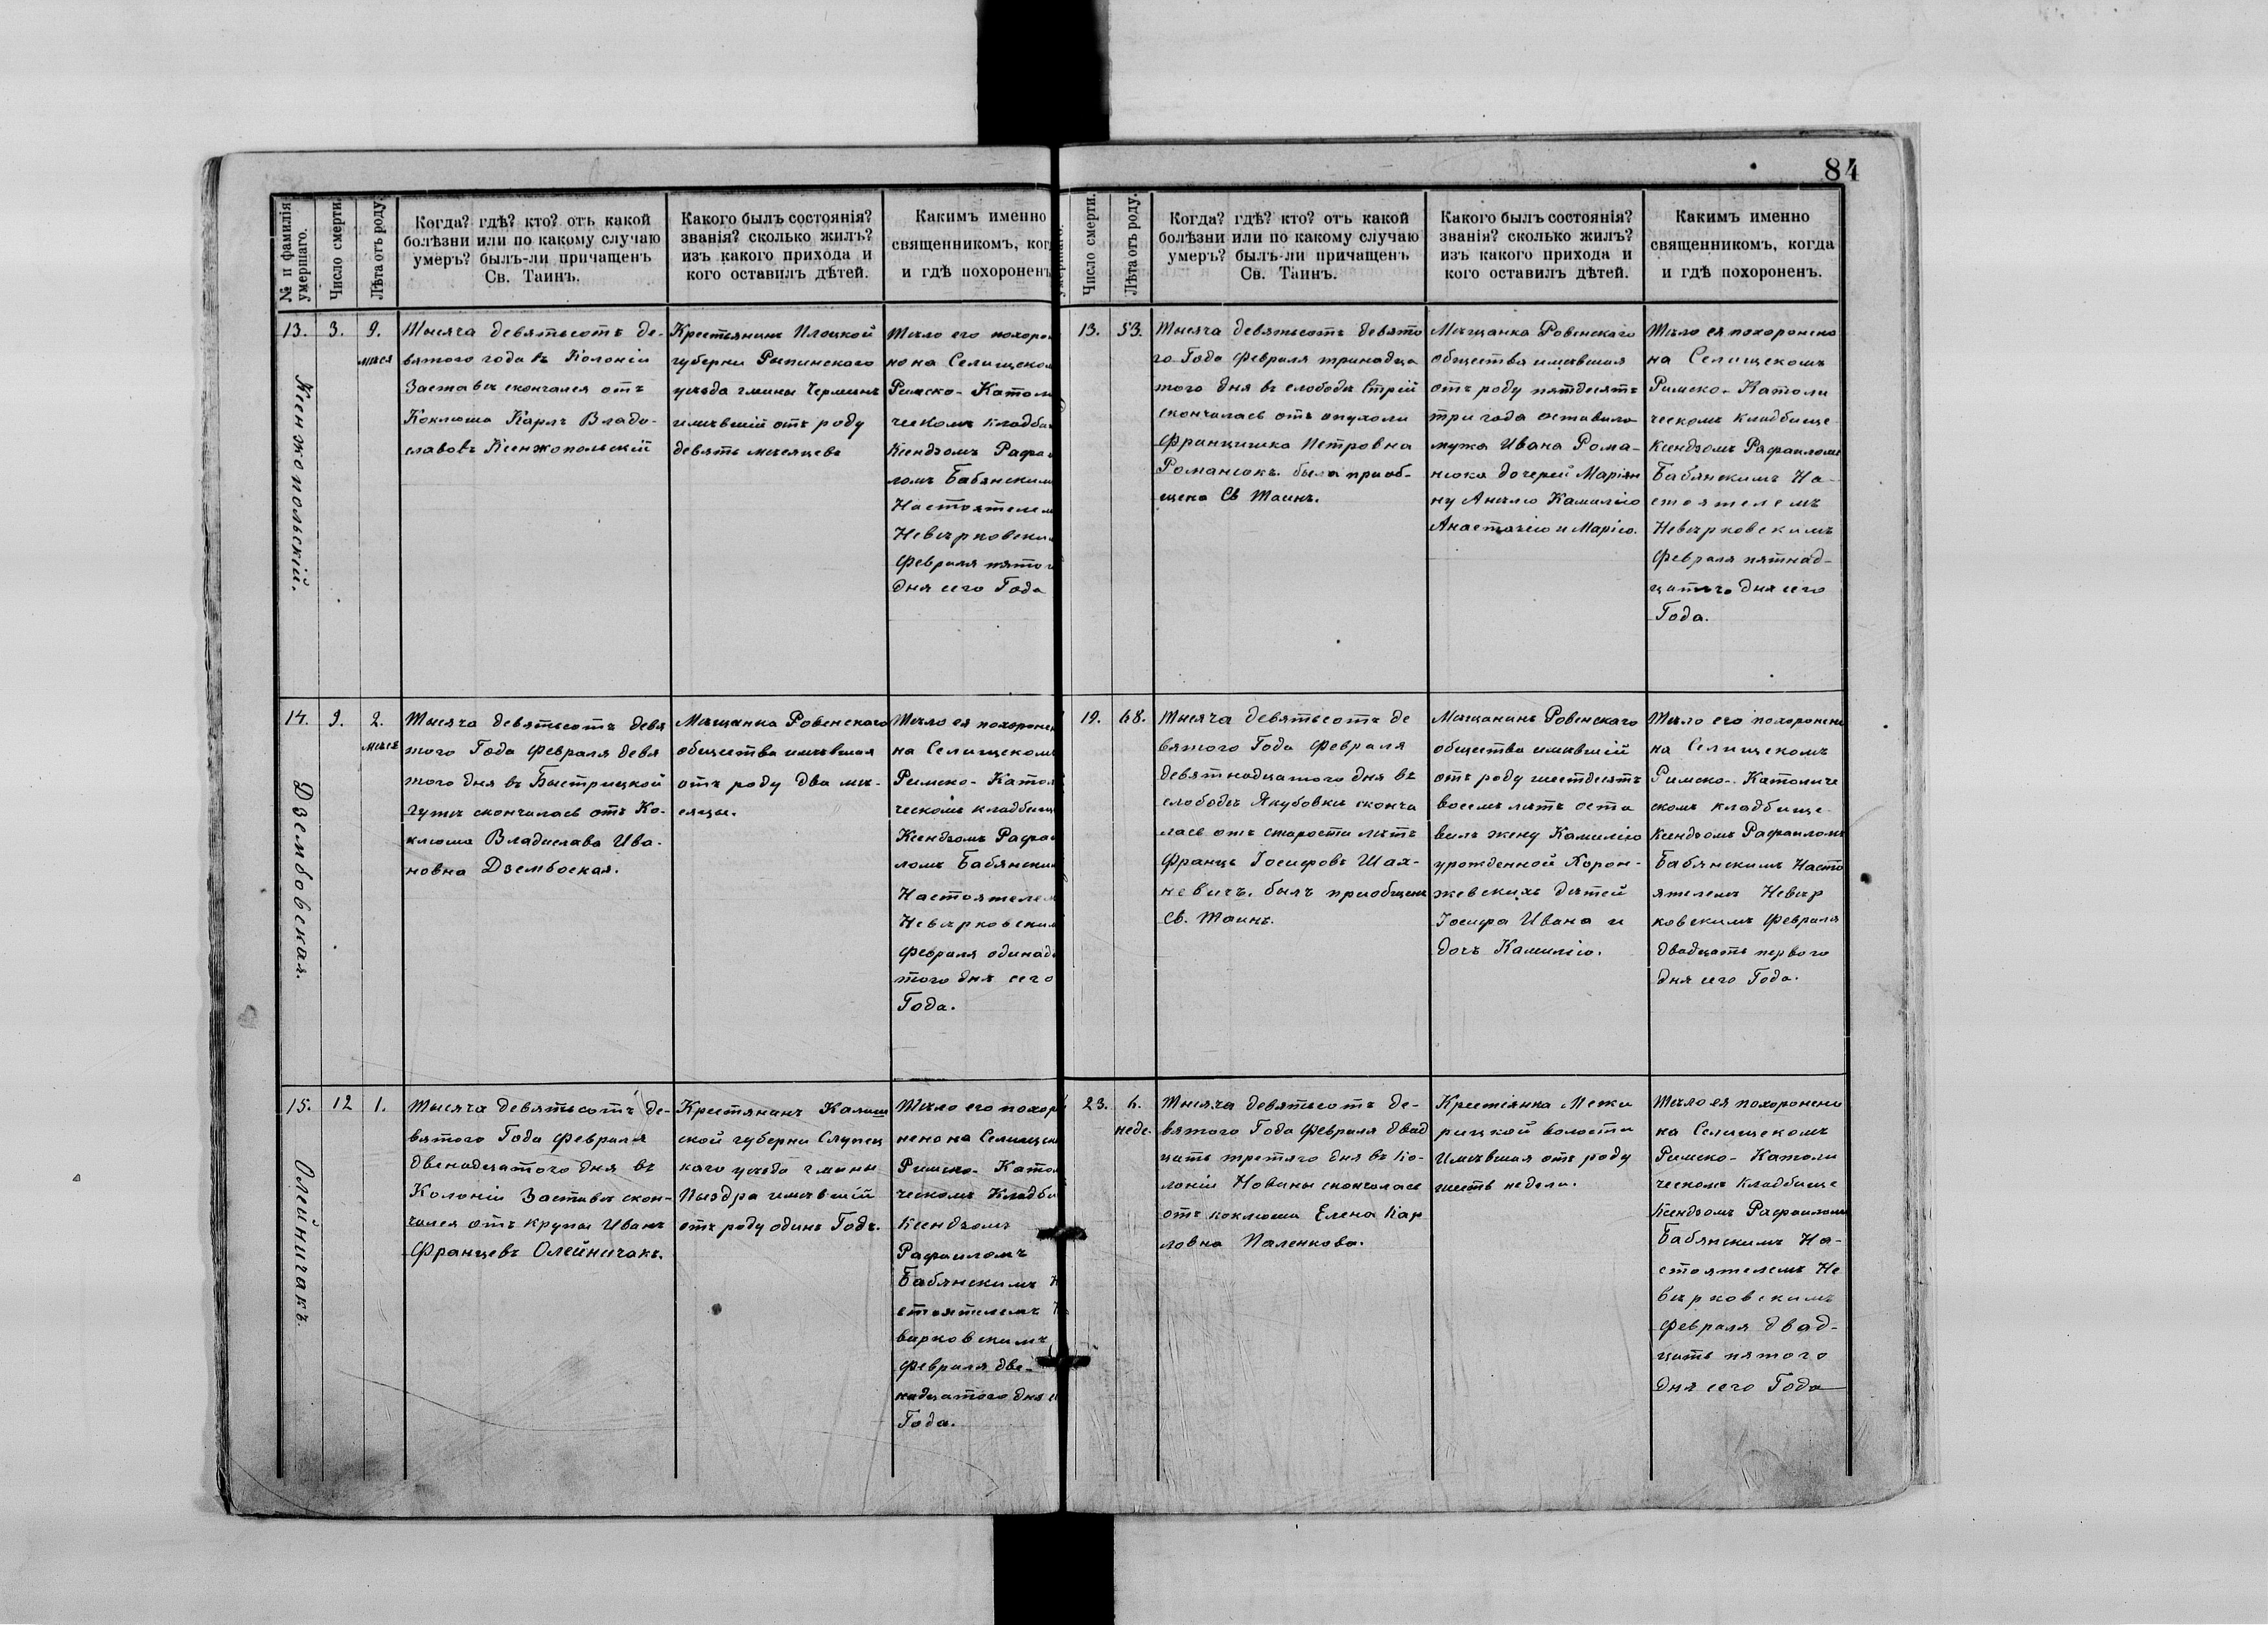 84
№ и фамилія
умершаго.
Число смерти.
Лѣта отъ роду.
Когда? гдѣ? кто? отъ какой
болѣзни или по какому случаю
умеръ? былъ-ли причащенъ
Св. Таинъ.
Какого былъ состоянія?
званія? сколько жилъ?
изъ какого прихода и
кого оставилъ дѣтей.
Какимъ именно
священникомъ, ког
и гдѣ похороненъ
13.
Ксенжопольскій.
3.
9.
мѣся
Тысяча девятьсотъ де-
вятого года въ Колоніи
Заставѣ скончался отъ
Коклюша Карлъ Влади-
славовъ Ксенжопольскій
Крестьянинъ Плоцкой
губерни Рыпинского
уѣзда гмины Черминъ
имѣвшій отъ роду
девять мѣсяцевъ
Тѣло его похоро
но на Селищском
Римско- Католи
ческомъ кладби
Ксендзомъ Рафа
ломъ Бабянским
Настоятелем
Невѣрковским
Февраля пятог
дня сего Года
14.
Дзембовская.
9.
2.
мѣся
Тысяча девятьсотъ девя
того Года Февраля девя
того дня въ Быстрицкой
гутѣ скончалась отъ Ко-
клюша Владислава Ива-
новна Дзембоская.
Мѣщанка Ровенскаго
общества имѣвшая
отъ роду два мѣ-
сяцы.
Тѣло ея похоронен
на Селищском
Римско- Катол
ческомъ кладбищ
Ксендзомъ Рафа
ломъ Бабянски
Настоятеле
Невѣрковским
Февраля одинад
того дня сего
Года.
15.
Олейничакъ.
12
1.
Тысяча девятьсотъ де-
вятого Года Февраля
двенадцатого дня въ
Колоніи Заставѣ скон-
чался отъ крупы Иванъ
Францевъ Олейничакъ.
Крестянинъ Калиш
ской губерни Слупец
каго уѣзда гмины
Пыздра имѣвшій
отъ роду одинъ Годъ.
Тѣло его похор
нено на Селищск
Римско- Катол
ческомъ Кладби
Ксендзомъ
Рафаиломъ
Бабянскимъ Н
стоятелемъ
вѣрковскимъ
Февраля две-
надцатого дня с
Года.
Число смерти.
Лѣта отъ роду.
Когда? гдѣ? кто? отъ какой
болѣзни или по какому случаю
умеръ? былъ-ли причащенъ
Св. Таинъ.
Какого былъ состоянія?
званія? сколько жилъ?
изъ какого прихода и
кого оставилъ дѣтей.
Какимъ именно
священникомъ, когда
и гдѣ похороненъ.
13.
53.
Тысяча девятьсотъ девято
го Года Февраля тринадца
того дня въ слободѣ Стрій
скончалась отъ опухоли
Францишка Петровна
Романюкъ. была приоб-
щена Св Таинъ.
Мѣщанка Ровенскаго
общества имѣвшая
отъ роду пятдесятъ
три года оставила
мужа Ивана Рома-
нюка дочерей Маріян
ну Анелю Камилію
Анастазію и Марію.
Тѣло ея похоронено
на Селищскомъ
Римско- Католи
ческомъ кладбище
Ксендзомъ Рафаиломъ
Бабянскимъ На-
стоятелемъ
Невѣрковскимъ
Февраля пятнад-
цатого дня сего
Года.
19.
68.
Тысяча девятьсотъ де
вятого Года Февраля
девятнадцатого дня въ
слободѣ Якубовки сконча
лась отъ старости лѣтъ
Францъ Іосифовъ Шах-
невичъ. былъ приобщенъ
Св. Таинъ.
Мѣщанинъ Ровенскаго
общества имѣвшій
отъ роду шестдесятъ
восемь лѣтъ оста
вилъ жену Камилію
урожденной Хорон-
жевскихъ дѣтей
Іосифа Ивана и
дочь Камилію.
Тѣло его похоронени
на Селищскомъ
Римско- Католиче
скомъ кладбище
Ксендзомъ Рафаиломъ
Бабянскимъ Насто
ятелемъ Невѣр
ковскимъ Февраля
двадцать первого
дня сего Года.
23.
6.
неде.
Тысяча девятьсотъ де-
вятого Года Февраля двад
цать третяго дня въ Ко-
лоніи Новины скончалась
отъ коклюша Елена Кар
ловна Паленкова.
Крестіянка Межи
рицкой волости
Имѣвшая отъ роду
шесть недели.
Тѣло ея похоронени
на Селищскомъ
Римско- Католи
ческомъ Кладбище
Ксендзомъ Рафаиломъ
Бабянскимъ На-
стоятелемъ Не
вѣрковскимъ
Февраля двад-
цать пятого
дня сего Года